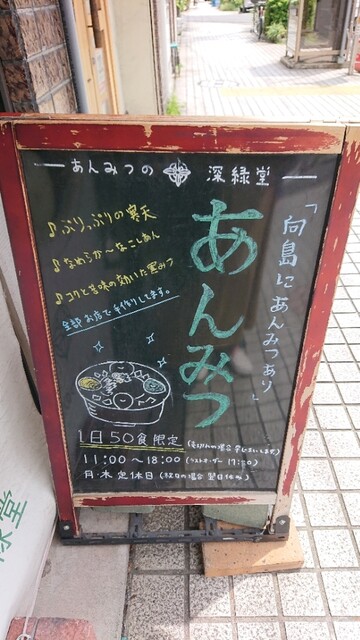 あんみつの 深緑堂
「向島にあんみつあり」
あんみつ
♪ぷりっぷりの寒天
♪なめらか〜なこしあん
♪コクと苦味の効いた黒みつ
全部お店で手作りしてます。
1日50食限定(売り切れの場合 早じまいします)
11:00〜18:00(ラストオーダー 17:30)
月・木 定休日(祝日の場合 翌日休み)
緑堂